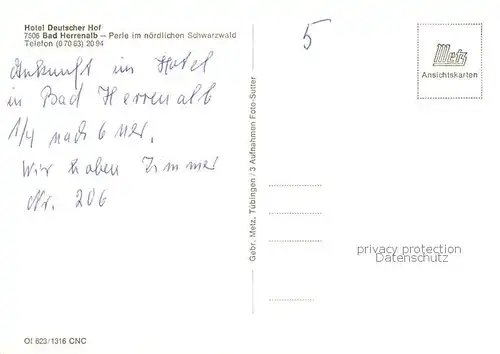 Hotel Deutscher Hof
7506 Bad Herrenalb — Perle im nördlichen Schwarzwald
Telefon (0 70 83) 20 94
Ankunft im Hotel
in Bad Herrenalb
1/4 nach 6 Uer.
Wir haben Zimmer
Nr. 206
5
Metz
Ansichtskarten
Gebr. Metz, Tübingen / 3 Aufnahmen Foto-Sutter
privacy protection
Datenschutz
OI 623/1316 CNC